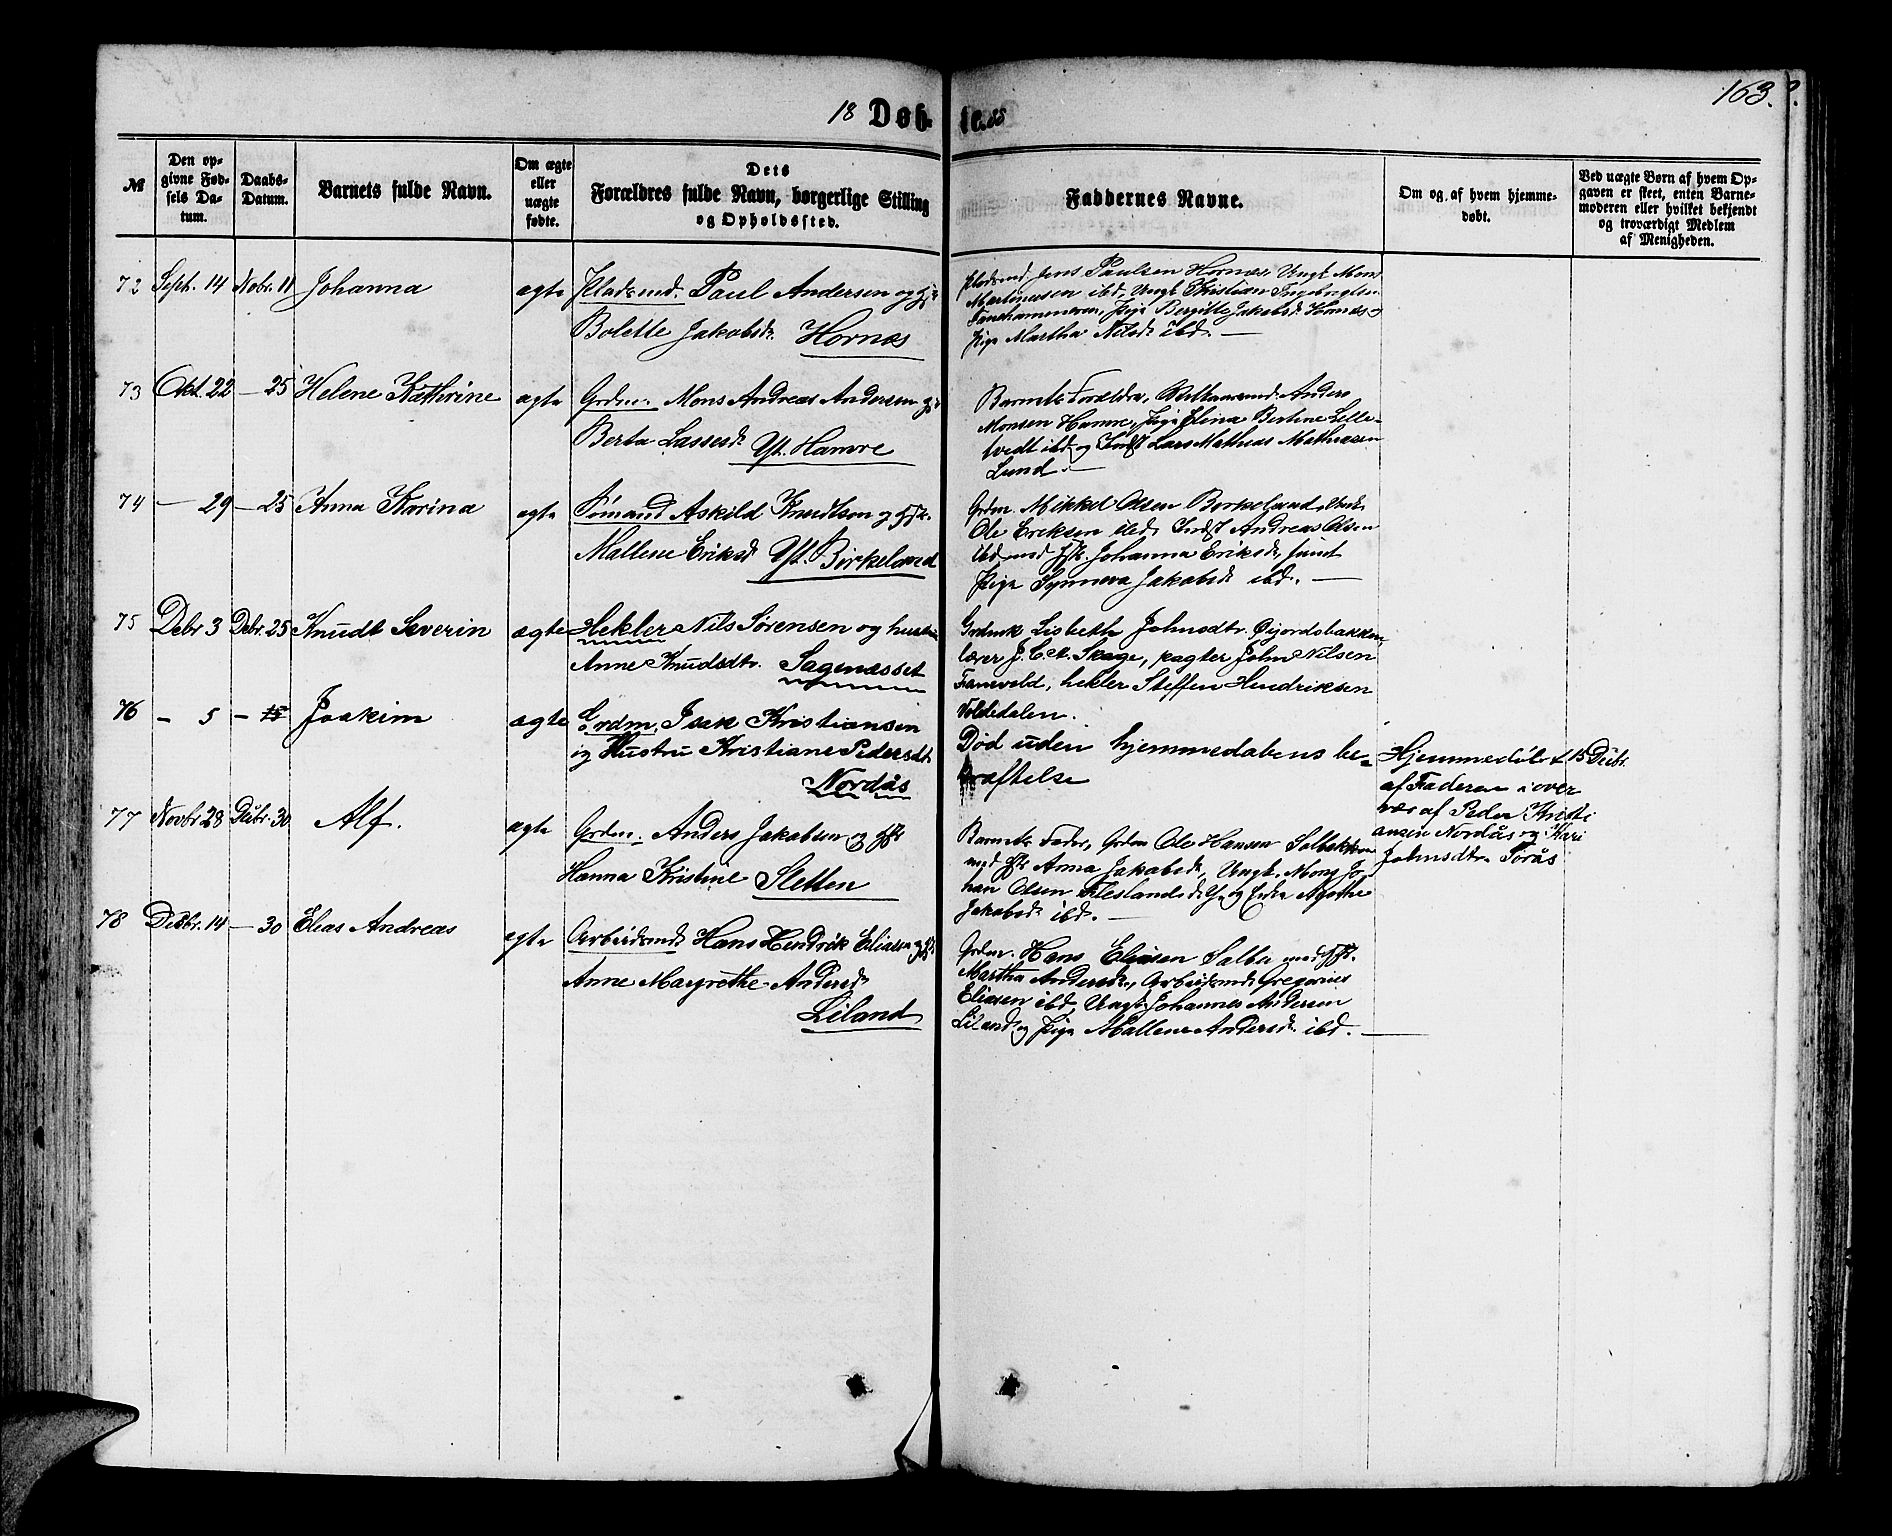 18 Døb- te. 85
163.
№
Den op-
givne Fød-
sels Da-
tum.
Daabs-
Datum.
Barnets fulde Navn.
Om ægte
eller
uægte
fødte.
Dets
Forældres fulde Navn, borgerlige Stilling
og Opholdssted.
Faddernes Navne.
Om og af hvem hjemme-
døbt.
Ved uægte Børn af hvem Op-
gaven er skeet, enten Barne-
moderen eller hvilket bekjendt
og troværdigt Medlem
af Menigheden.
72 Sept. 14 Nobr. 11 Johanna ægte Pladsmd. Paul Andersen og
Bolette Jakobsd. Hornæs
Pladsmd. Jens Paulsen Hornæs, Ungk. Mons
Martinessen ibd, Ungk. Kristian Ingebrigtsen
Pige Bergitte Jakobsd. Hornæs og
Pige Martha Nilsd. ibd.
73 Okt. 22 — 25 Helene Kathrine ægte Grdm. Mons Andreas Andersen
Berta Lassesd. Yt. Hamre
Barnets Forældre, Anders
Monsen Hamre, Pige Elina Bertine Lille-
tvedt ibd og Lars Mathias Mathiasen
Lund.
74 — 29 — 25 Anna Karina ægte Sømand Askild Knudtson og
Mallene Eriksd. Yt. Birkeland
Grdm. Mikkel Olsen Borkeland,
Ole Eriksen ibd, Andreas Olsen
ibd med Johanna Eriksd, samt
Pige Synneva Jakobsd. ibd.
75 Debr 3 Debr. 25 Knudt Severin ægte Hekler Nils Sørensen og hustru
Anne Knudsdtr. Sagenæsset
Lisbeth Johnsdtr. Øijordsbakken,
lærer J. C. A. Skage, pagter John Nilsen
Fanevold, hekler Steffen Hendriksen
Toldedalen.
76 — 5 — 15 Joakim ægte Grdm. Isak Kristiansen
og Hustru Kristiane Pedersdt.
Nordås
Død uden hjemmedabens be-
kræftelse
Hjemmedøbt 15 Debr.
af Faderen i over
vær af Peder Kristi
ansen Nordås og Kari
Johnsdtr. Torås
77 Novbr 28 Debr. 30 Alf. ægte Grdm. Anders Jakobsen og
Hanna Kristine Sletten
Barnets Fader, Grdm Ole Hansen
med Anna Jakobsd, Ungk. Mons Jo-
han Olsen Flesland og Agathe
Jakobsd. ibd.
78 Debr. 14 — 30 Elias Andreas ægte Arbeidsmd. Hans Hendrik Eliassen
Anne Margrethe Andersd.
Liland
Grdm. Hans Eliasen med
Martha Andersd., Arbeidsmd. Gregorius
Eliasen ibd, Ungk. Johannes Andersen
Liland og Pige Mallene Andersd. ibd.